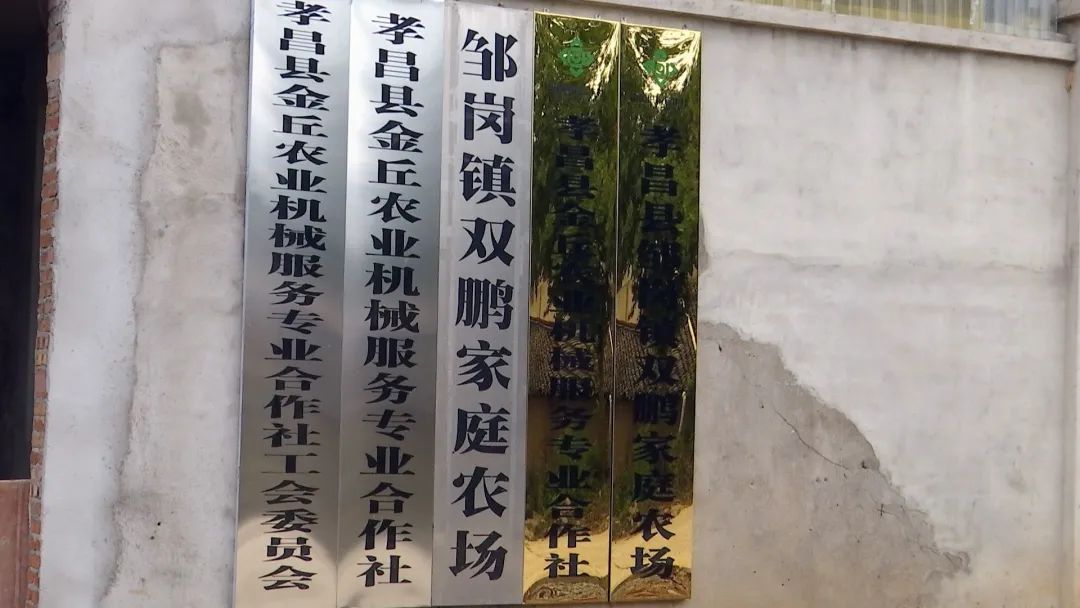 孝昌县金丘农业机械服务专业合作社工会委员会
孝昌县金丘农业机械服务专业合作社
邹岗镇双鹏家庭农场
孝昌县金丘农业机械服务专业合作社
孝昌县邹岗镇双鹏家庭农场